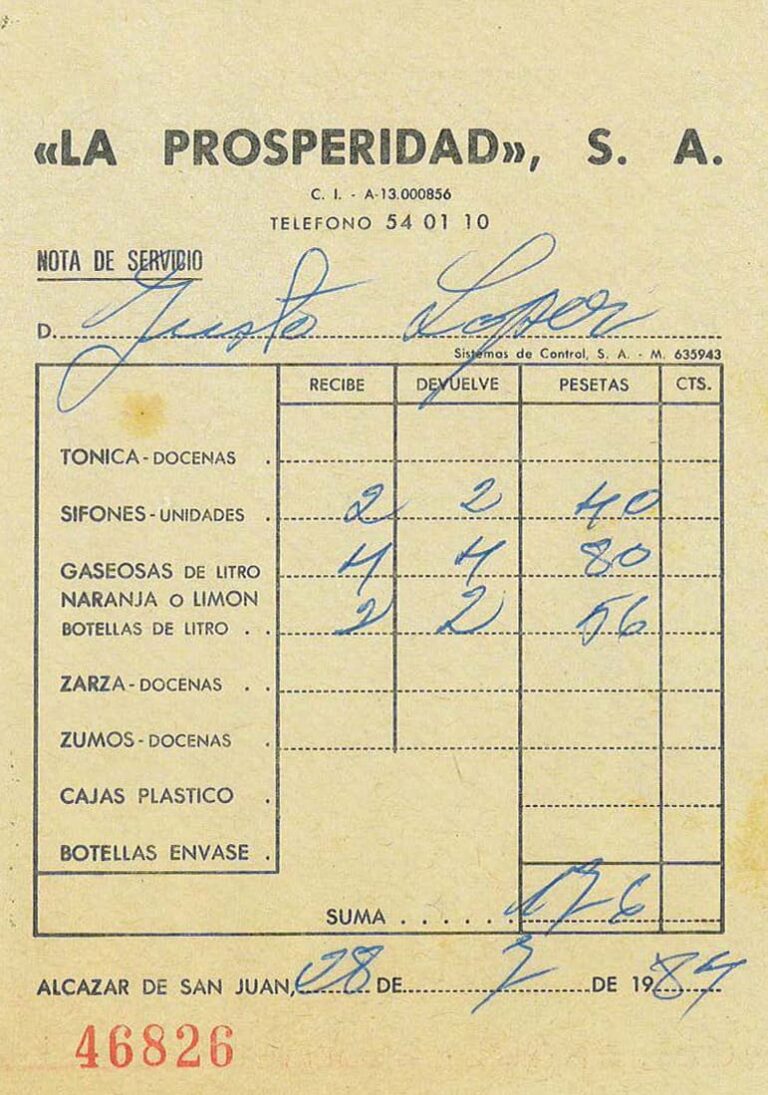 «LA PROSPERIDAD», S. A.
C. I. - A-13.000856
TELEFONO 54 01 10
NOTA DE SERVICIO
D. Justo Lopez
Sistemas de Control, S. A. - M. 635943
RECIBE DEVUELVE PESETAS CTS.
TONICA - DOCENAS .
SIFONES - UNIDADES . 2 2 40
GASEOSAS DE LITRO 4 4 80
NARANJA O LIMON
BOTELLAS DE LITRO . . 2 2 56
ZARZA - DOCENAS . .
ZUMOS - DOCENAS .
CAJAS PLASTICO .
BOTELLAS ENVASE .
SUMA . . . . . . 176
ALCAZAR DE SAN JUAN, 28 DE 7 DE 1984
46826